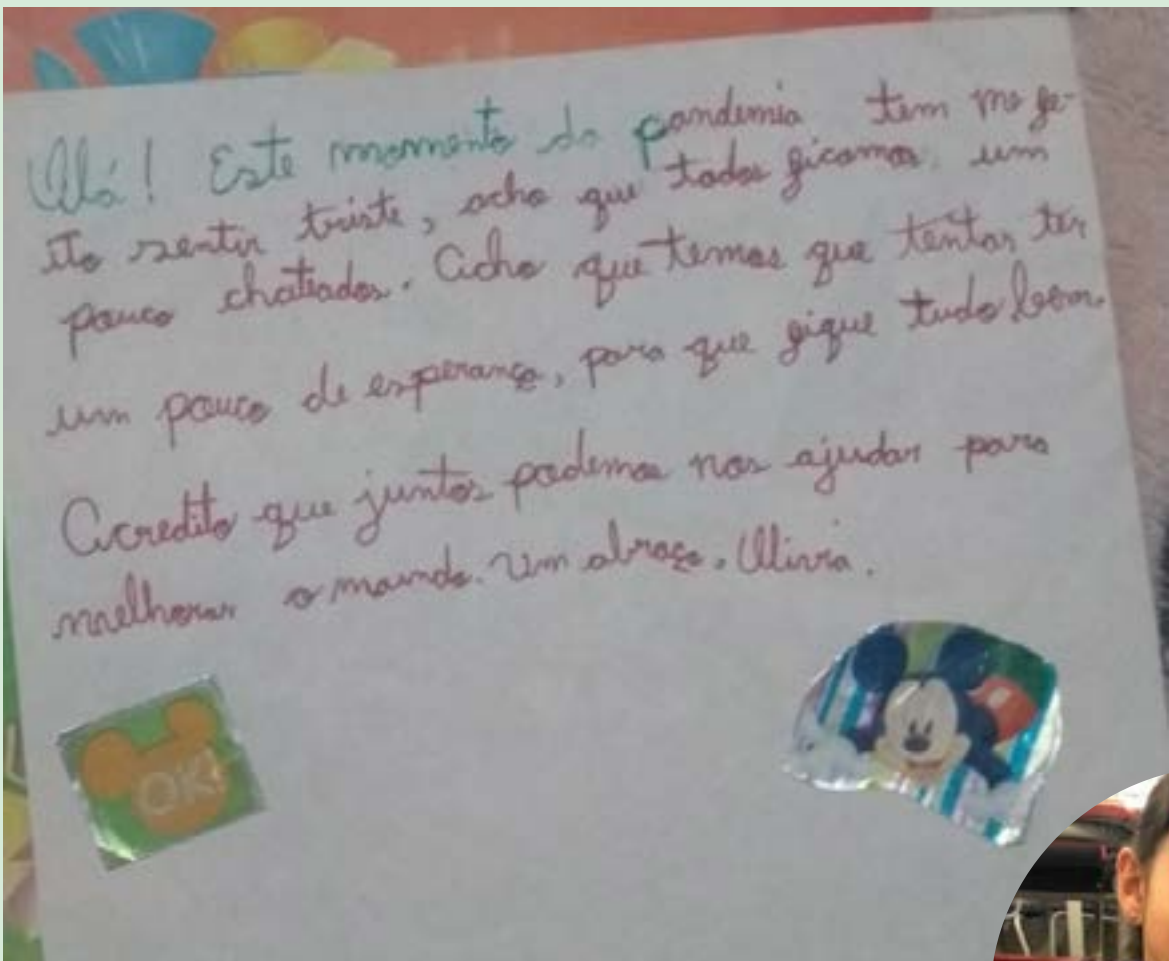 Olá! Este momento da pandemia tem me fe-
ito sentir triste, acho que todos ficamos um
pouco chateados. Acho que temos que tentar ter
um pouco de esperança, para que fique tudo bem.
Acredito que juntos podemos nos ajudar para
melhorar o mundo. Um abraço, Olivia.
OK!